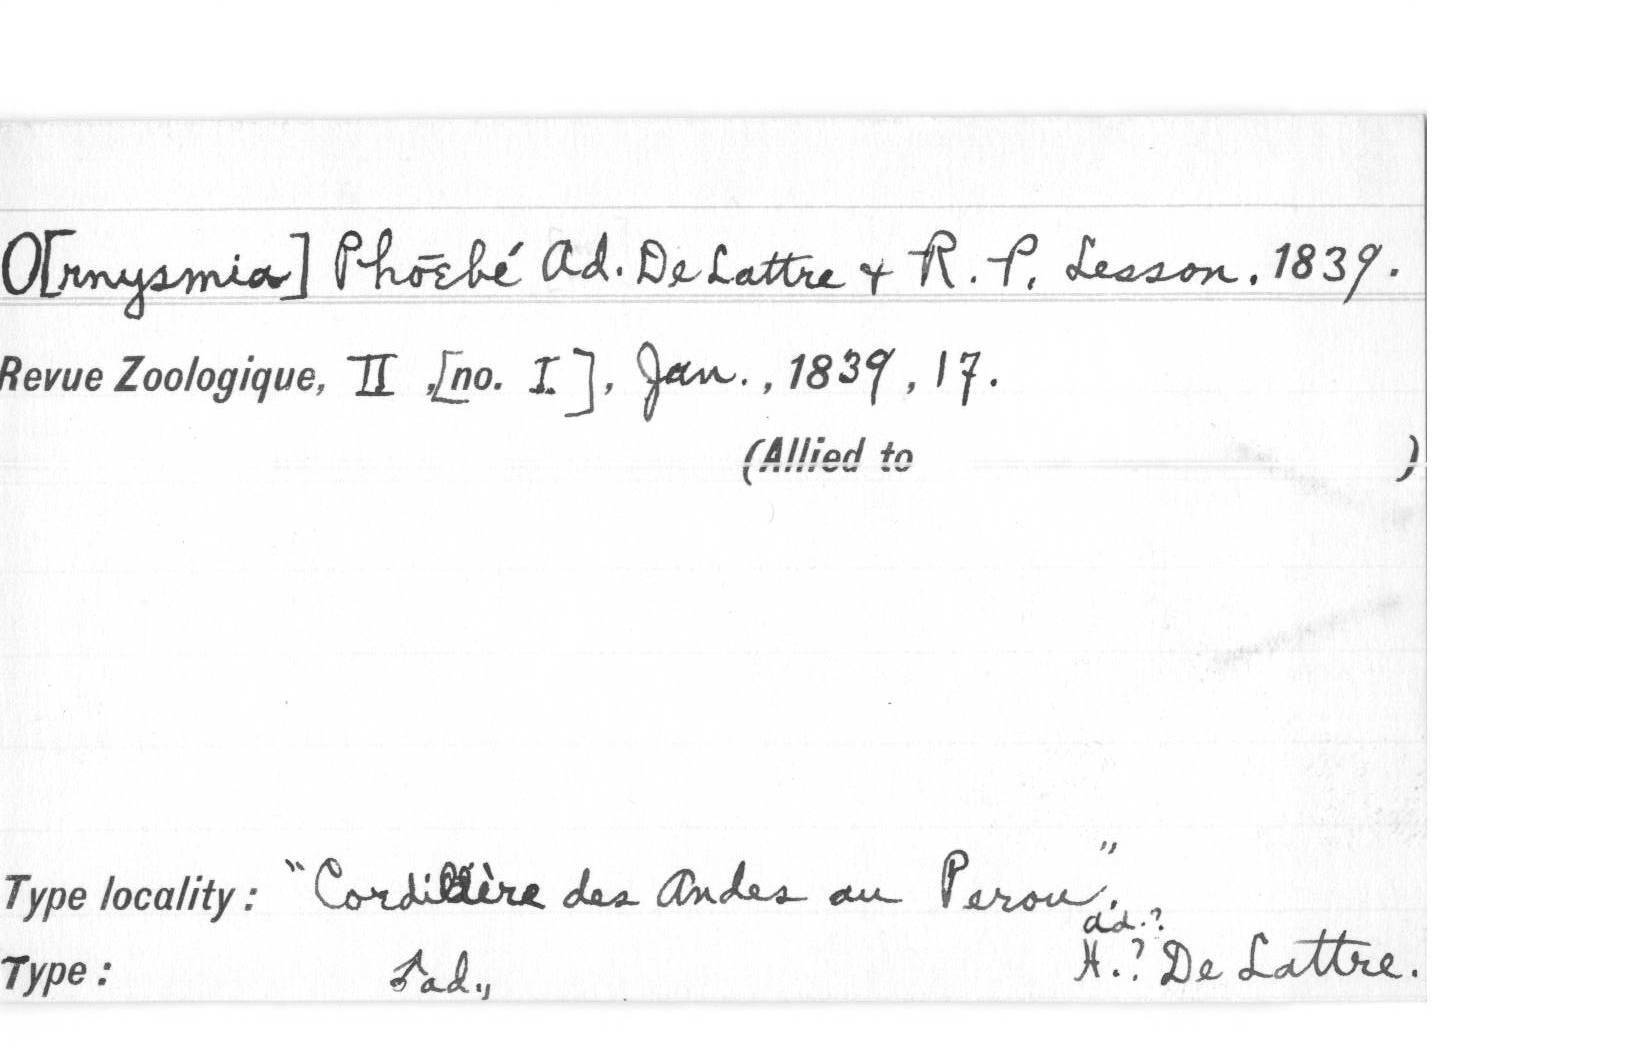 O[rnysmia] Phōebé Ad. De Lattre & R. P. Lesson. 1839.
Revue Zoologique, II, [no. I], Jan., 1839, 17.
(Allied to )
Type locality: "Cordillère des Andes au Perou".
ad.?
Type: ad., H.? De Lattre.